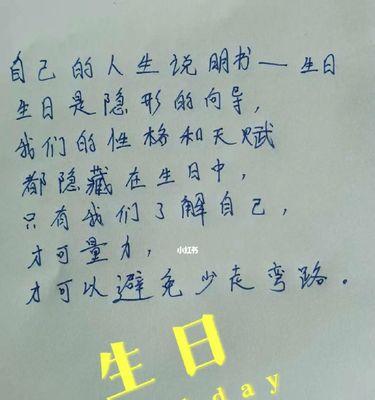 自己的人生说明书—生日
生日是隐形的向导，
我们的性格和天赋
都隐藏在生日中，
只有我们了解自己，
才可量力，
小红书
才可以避免少走弯路。
生日
day